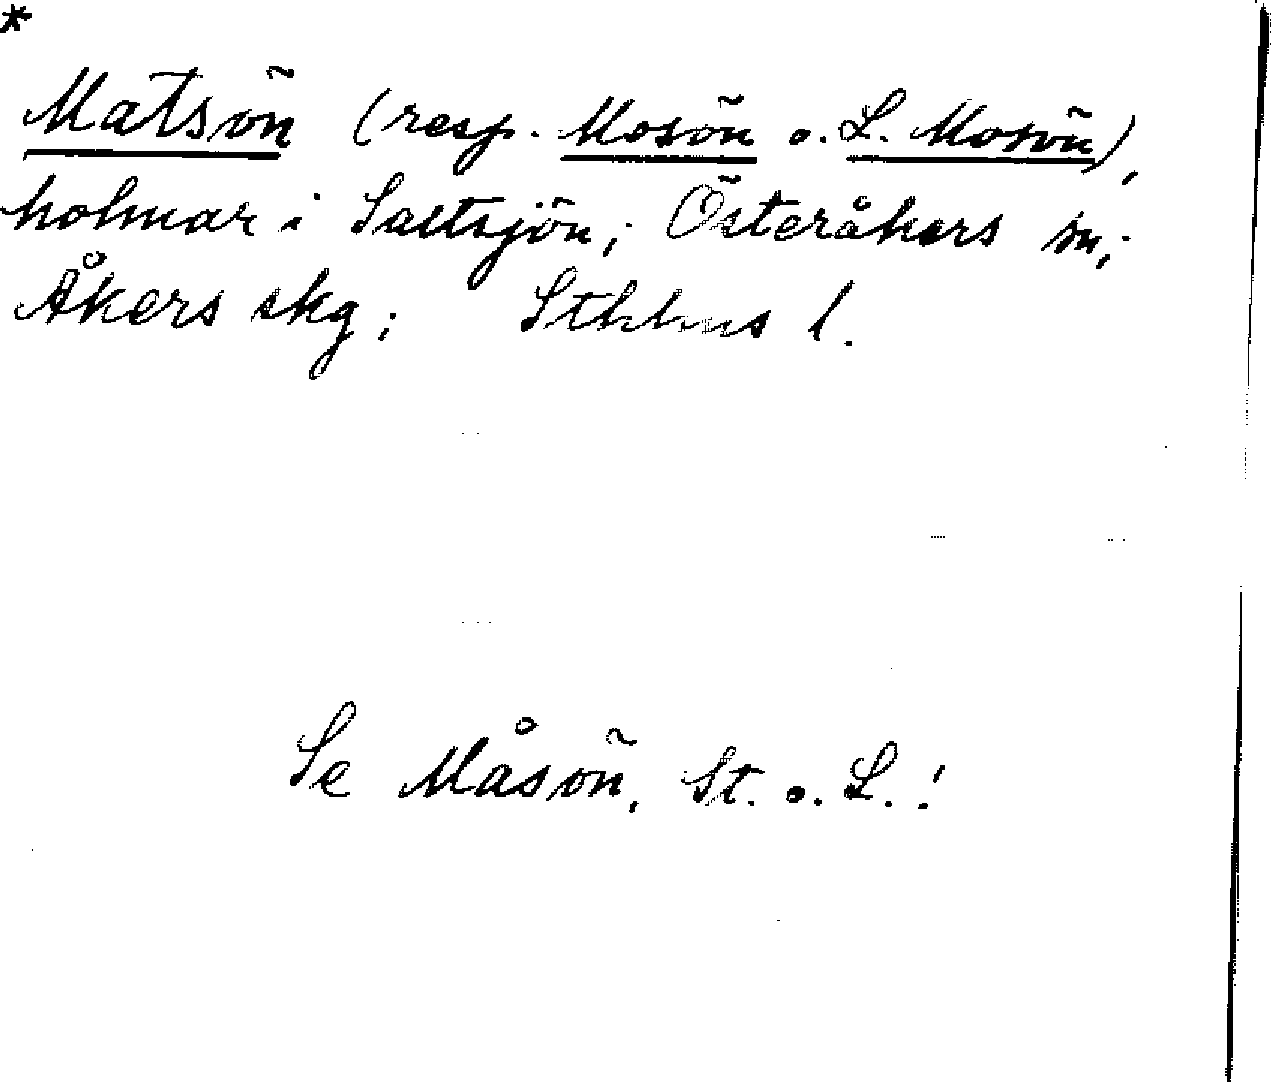 *
Matsön (resp. Mosön o. L. Mosön),
holmar i Saltsjön; Österåkers sn,;
Åkers skg; Sthlms l.
Se Måsön, St. o. L.!